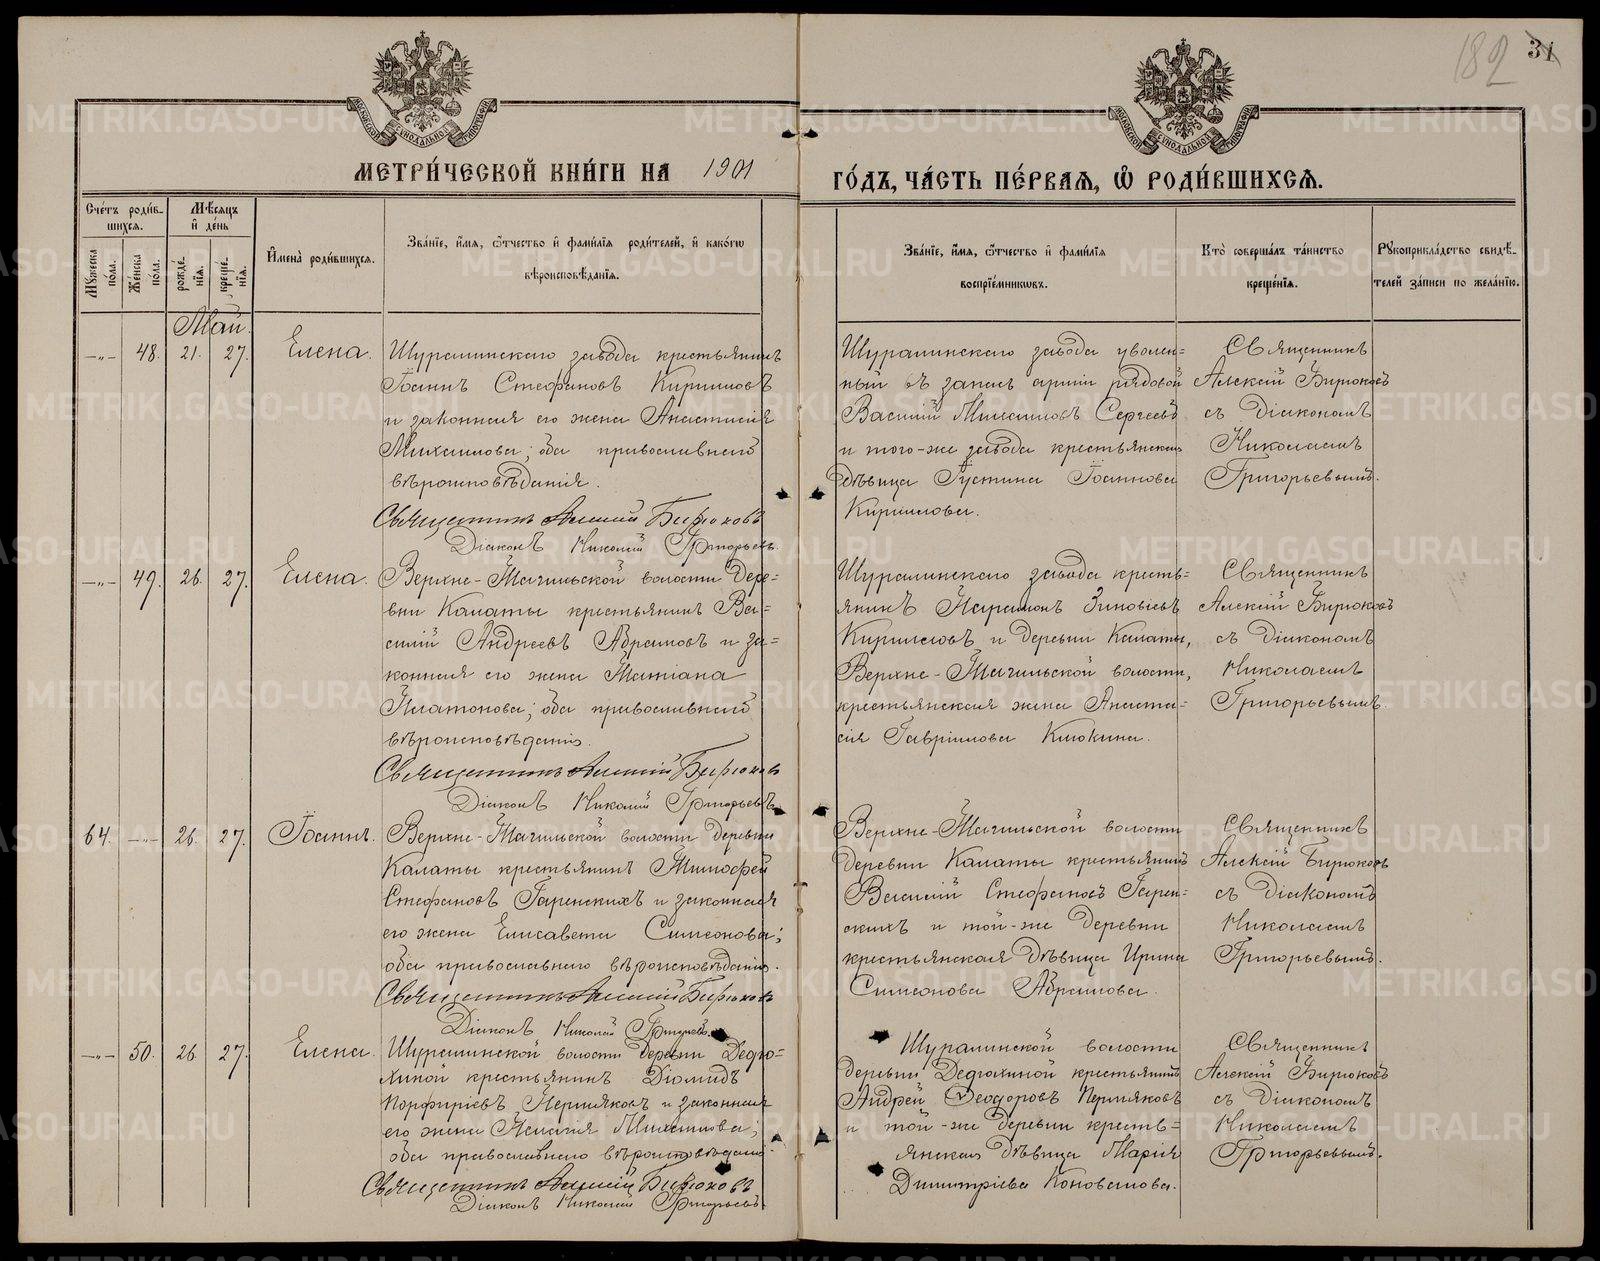 182 31
МЕТРИ́ЧЕСКОЙ КНИ́ГИ НА 1901 ГО́ДЪ, ЧА́СТЬ ПЕ́РВАЯ, Ѿ РОДИ́ВШИХСЯ.
Сче́тъ роди́в-
шихся.
Мѣ́сяцъ
и҆ де́нь
Мꙋ́жеска
по́ла.
Же́нска
по́ла.
рожде́-
нїя.
креще́-
нїя.
И҆мена̀ роди́вшихся.
Зва́нїе, и҆́мя, ѻ҆́тчество и҆ фами́лїя роди́телей, и҆ како́гѡ
вѣроисповѣ́данїя.
Зва́нїе, и҆́мя, ѻ҆́тчество и҆ фами́лїя
воспрїе́мникѡвъ.
Кто̀ соверша́лъ та́инство
креще́нїя.
Рꙋкоприкла́дство свидѣ́-
телей за́писи по жела́нїю.
Май.
—„— 48. 21. 27. Елена.
Шуралинскаго завода крестьянинъ
Іоаннъ Стефановъ Кирилловъ
и законная его жена Анастасія
Михаилова; оба православнаго
вѣроисповѣданія.
Священникъ Алексій Бирюковъ
Діаконъ Николай Григорьевъ.
Шуралинскаго завода уволен=
ный въ запасъ арміи рядовой
Василій Михаиловъ Сергеевъ
и того-же завода крестьянская
дѣвица Іустина Іоаннова
Кириллова.
Священникъ
Алексій Бирюковъ
съ Діакономъ
Николаемъ
Григорьевымъ.
—„— 49. 26. 27. Елена.
Верхне-Тагильской волости дере=
вни Калаты крестьянинъ Ва=
силій Андреевъ Абрамовъ и за=
конная его жена Татіана
Платонова; оба православнаго
вѣроисповѣданія.
Священникъ Алексій Бирюковъ
Діаконъ Николай Григорьевъ
Шуралинскаго завода кресть=
янинъ Парамонъ Зиновіевъ
Кирилловъ и деревни Калаты,
Верхне-Тагильской волости,
крестьянская жена Анаста=
сія Гавріилова Клюкина.
Священникъ
Алексій Бирюковъ
съ Діакономъ
Николаемъ
Григорьевымъ.
64. —„— 26. 27. Іоаннъ.
Верхне-Тагильской волости деревни
Калаты крестьянинъ Тимофей
Стефановъ Гаренскихъ и законная
его жена Елисавета Симеонова;
оба православнаго вѣроисповѣданія.
Священникъ Алексій Бирюковъ
Діаконъ Николай Григорьевъ.
Верхне-Тагильской волости
деревни Калаты крестьянинъ
Василій Стефановъ Гарен=
скихъ и той-же деревни
крестьянская дѣвица Ирина
Симеонова Абрамова.
Священникъ
Алексій Бирюковъ
съ Діакономъ
Николаемъ
Григорьевымъ.
—„— 50. 26. 27. Елена.
Шуралинской волости деревни Дедю=
хиной крестьянинъ Діомидъ
Порфиріевъ Пермяковъ и законная
его жена Пелагія Михаилова;
оба православнаго вѣроисповѣданія.
Священникъ Алексій Бирюковъ
Діаконъ Николай Григорьевъ.
Шуралинской волости
деревни Дедюхиной крестьянинъ
Андрей Ѳеодоровъ Пермяковъ
и той-же деревни кресть=
янская дѣвица Марія
Димитріева Коновалова.
Священникъ
Алексій Бирюковъ
съ Діакономъ
Николаемъ
Григорьевымъ.